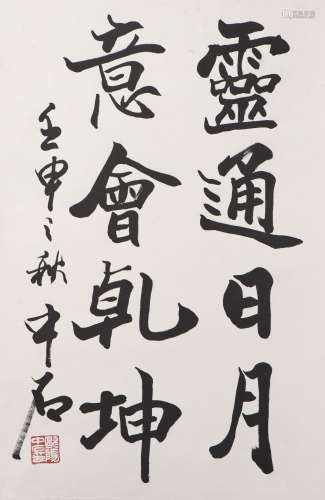 靈通日月
意會乾坤
壬申之秋中石